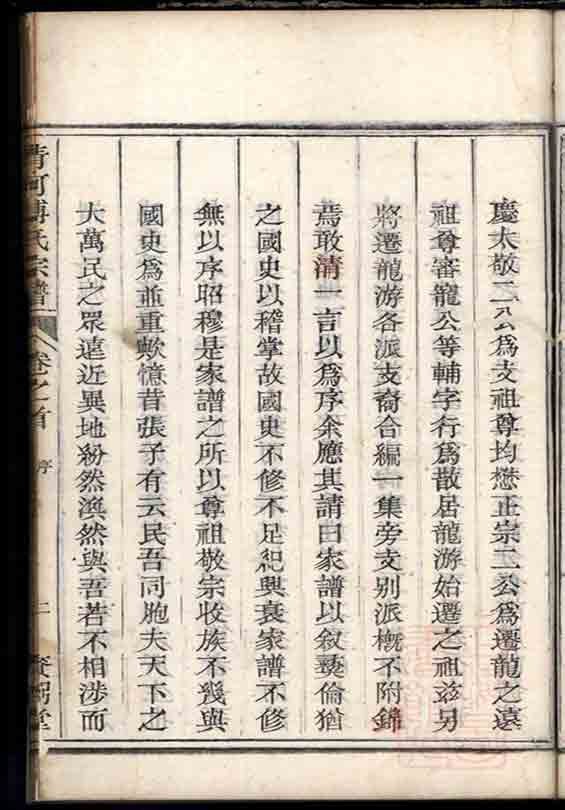 慶太敬二公爲支祖尊均懋正宗二公爲遷龍之遠
祖尊審寵公等輔字行爲散居龍游始遷之祖茲另
將遷龍游各派支裔合編一集旁支別派槪不附錦
焉敢清一言以爲序余應其請曰家譜以敘彝倫猶
之國史以稽掌故國史不修不足紀興衰家譜不修
無以序昭穆是家譜之所以尊祖敬宗收族不幾與
國史爲並重歟憶昔張子有云民吾同胞夫天下之
大萬民之眾遠近異地紛然渙然與吾若不相涉而
清河傅氏宗譜
卷之首
序
二